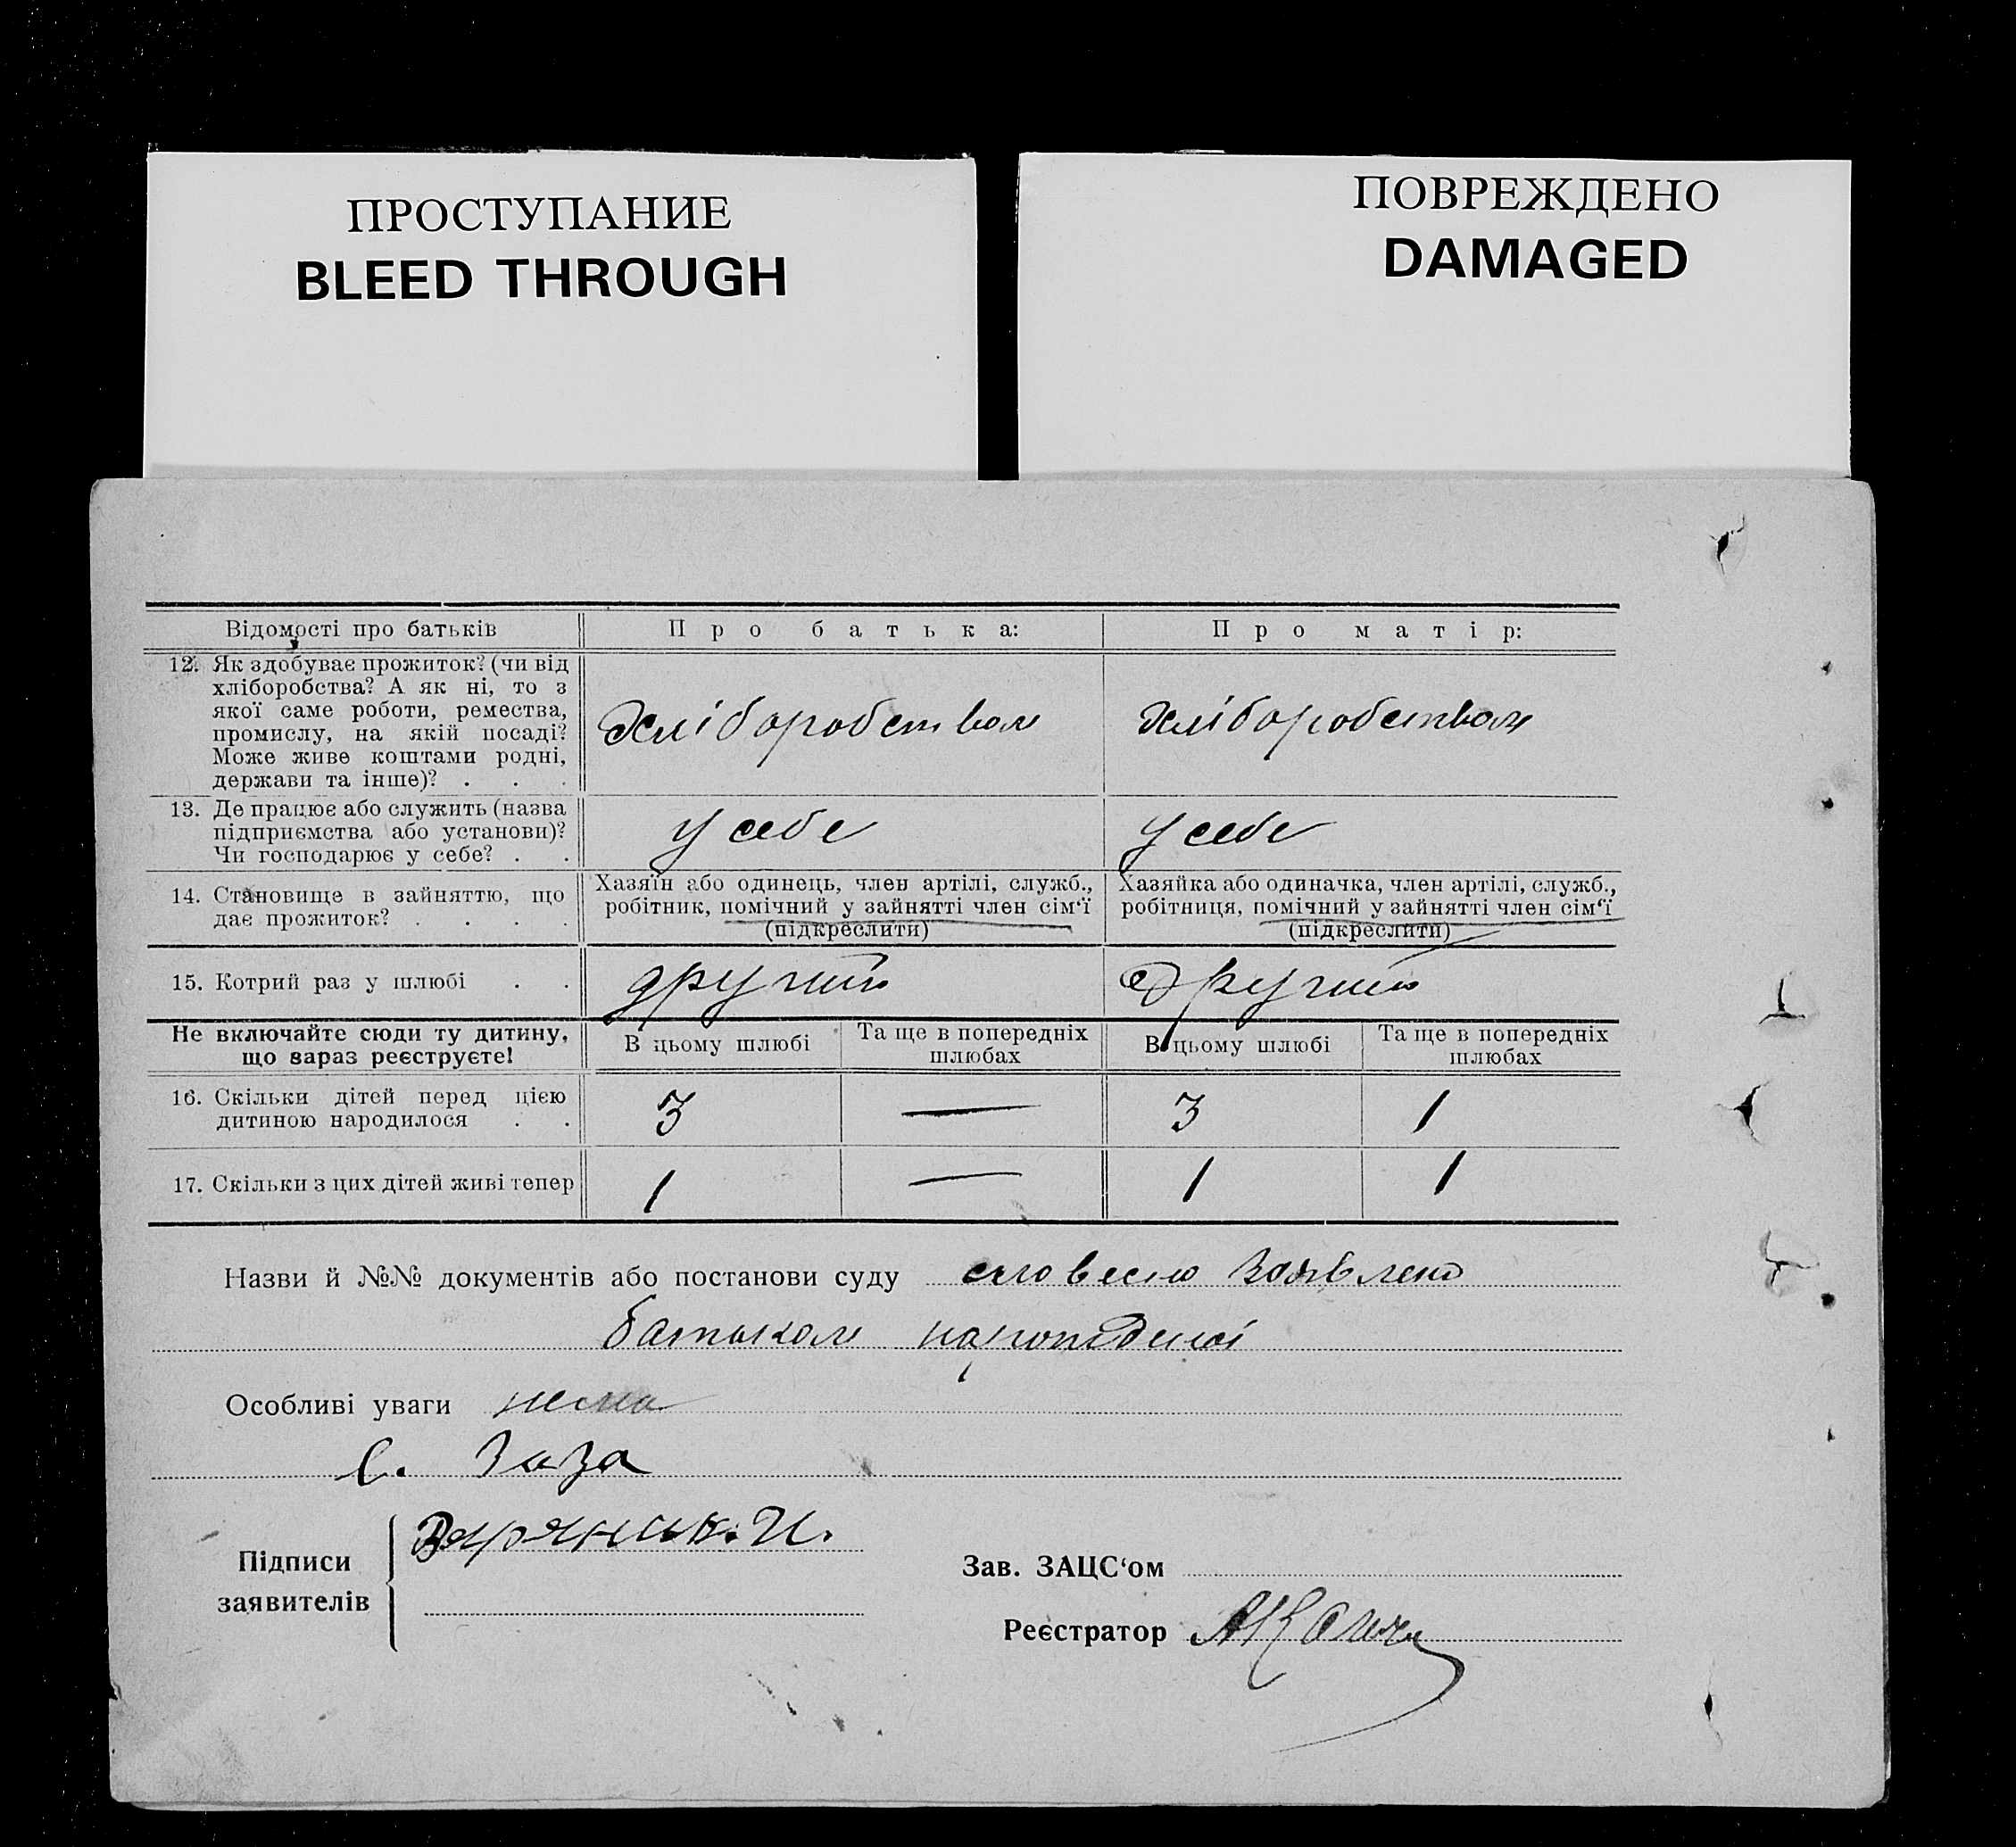 ПРОСТУПАНИЕ
BLEED THROUGH
ПОВРЕЖДЕНО
DAMAGED
Відомості про батьків
Про батька:
Про матір:
12. Як здобуває прожиток? (чи від
хліборобства? А як ні, то з
якої саме роботи, ремества,
промислу, на якій посаді?
Може живе коштами родні,
держави та інше)? . . .
Хліборобством
Хліборобством
13. Де працює або служить (назва
підприємства або установи)?
Чи господарює у себе? . .
у себе
у себе
14. Становище в зайняттю, що
дає прожиток? . . . .
Хазяїн або одинець, член артілі, служб.,
робітник, помічний у зайнятті член сім‘ї
(підкреслити)
Хазяйка або одиначка, член артілі, служб.,
робітниця, помічний у зайнятті член сім‘ї
(підкреслити)
15. Котрий раз у шлюбі . .
другий
другий
Не включайте сюди ту дитину,
що зараз реєструєте!
В цьому шлюбі
Та ще в попередніх
шлюбах
В цьому шлюбі
Та ще в попередніх
шлюбах
16. Скільки дітей перед цією
дитиною народилося . .
3 — 3 1
17. Скільки з цих дітей живі тепер
1 — 1 1
Назви й №№ документів або постанови суду словесно заявлено
батьком
Особливі уваги нема
С.
Підписи
заявителів
Зав. ЗАЦС‘ом
Реєстратор